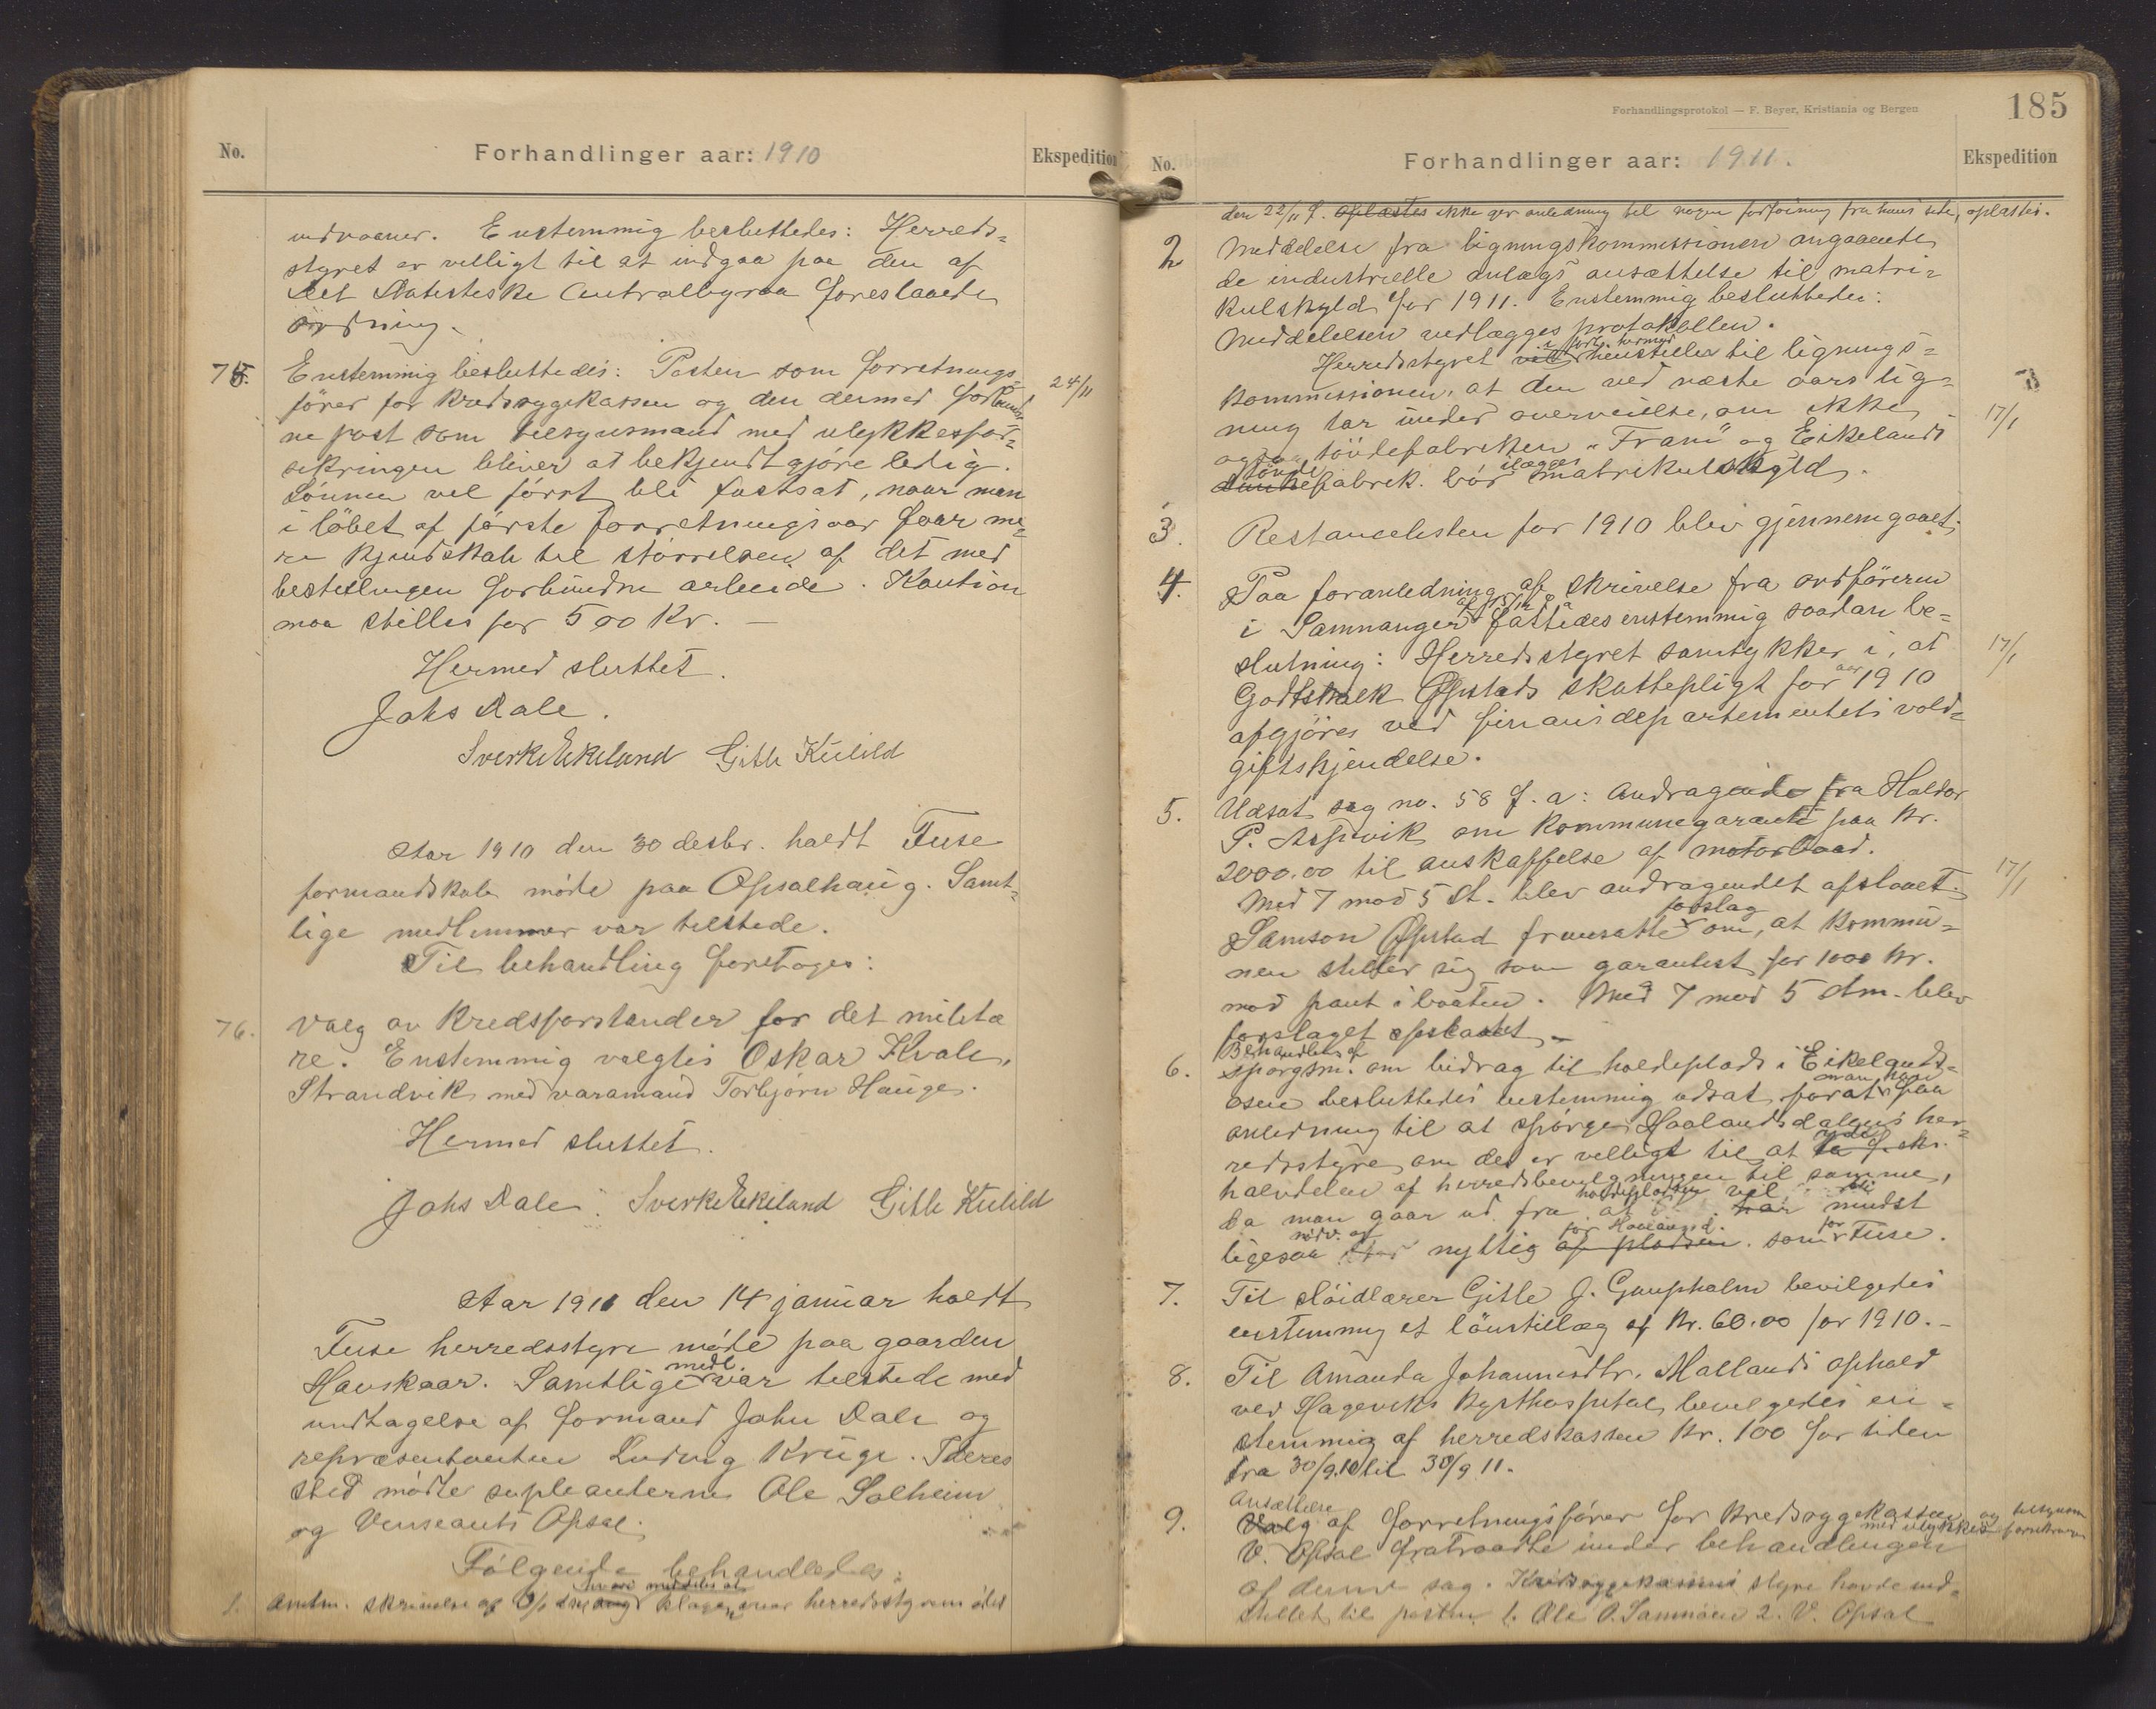 No. Forhandlinger aar: 1910 Ekspedition
indvaaner. Enstemmig besluttedes: Herreds=
styret er villigt til at indgaa paa den af
Det Statistiske Centralbyraa foreslaaede
ordning.
75. Enstemmig besluttedes: Posten som forretnings= 24/11
förer for kredssygekassen og den dermed forbund
ne post som tilsynsmand med ulykkesfor=
sikringen bliver at bekjendtgjöre ledig.
Lönnen vil först bli fastsat, naar man
i löbet af förste forretningsaar faar me=
re kjendskab til störrelsen af det med
bestillingen forbundne arbeide. Kaution
maa stilles for 500 Kr. —
Hermed sluttet.
Johs Dale.
Sverke Ekeland Gitle Kulild
Aar 1910 den 30 desbr. holdt Fuse
formandskab möde paa Opsalhaug. Samt=
lige medlemmer var tilstede.
Til behandling foretoges:
76. Valg av kredsforstander for det militæ
re. Enstemmig valgtes Oskar Kvale,
Strandvik med varamand Torbjörn Hauge.
Hermed sluttet.
Johs Dale. Sverke Ekeland Gitle Kulild
Aar 1911 den 14 januar holdt
Fuse herredsstyre möde paa gaarden
medl.
Havskaar. Samtlige var tilstede med
undtagelse af formand Johs Dale og
repræsentanten Ludvig Krüge. I deres
sted mödte supleanterne Ole Solheim
og Venseants Opsal.
Fölgende behandledes:
hvori meddeles at
1. Amtm. skrivelse af klagen over herredsstyrem ödet
Forhandlingsprotokol — F. Beyer, Kristiania og Bergen 185
No. Forhandlinger aar: 1911. Ekspedition
den 22/11 f. oplæstes ikke gir anledning til nogen forföining fra hans side, oplæstes.
2 Meddelelse fra ligningskommissionen angaaende
de industrielle anlægs ansættelse til matri=
kulskyld for 1911. Enstemmig besluttedes:
Meddelelsen vedlægges protokollen.
i forb. hermed
Herredsstyret vil henstiller til lignings=
kommissionen, at den ved næste aars lig=
ning tar under overveielse, om ikke 17/1
ogsaa töndefabriken "Fram" og Eikelands
tönde ilægges
fabrik bör matrikulskyld.
3. Restancelisten for 1910 blev gjennemgaaet.
4. Paa foranledning af skrivelse fra ordföreren
i Samnanger fattedes enstemmig saadan be=
slutning: Herredsstyret samtykker i, at 17/1
aar
Godtskalk Öpstads skattepligt for 1910
afgjöres ved finansdepartementets vold=
giftskjendelse.
5. Udsat sag no. 58 f. a: Andragende fra Haldor
P. Aspevik om kommunegaranti paa kr.
2000.00 til anskaffelse af motorbaad.
Med 7 mod 5 st. blev andragendet afslaaet. 17/1
forslag
Samson Öpstad fremsatte om, at kommu=
nen stiller sig som garantist for 1000 kr.
mod pant i baaten. Med 7 mod 5 stm. blev
forslaget afslaaet.
Behandlen af
6. spörgsm. om bidrag til holdeplads i Eikelands=
osen besluttedes enstemmig udsat, forat man kan faa
anledning til at spörge Haalandsdalens her=
redsstyre, om det er villigt til at yde
halvdelen af herredsbevilgningen til samme,
holdepladsen bli
da man gaar ud fra, at vil mindst
nödv. og for Haalandsd. for
ligesaa nyttig af pladsen som Fuse.
7. Til slöidlærer Gitle J. Gaupholm bevilgedes
enstemmig et lönstillæg af Kr. 60.00 for 1910. –
8. Til Amanda Johannesdtr. Mallands ophold
ved Hageviks Kysthospital, bevilgedes en=
stemmig af herredskassen Kr. 100 for tiden
fra 30/9.10 til 30/9 11.
Ansættelse
9. Valg af forretningsförer for kredssygekassen og tilsynsm
med ulykkesforsikringen
V. Opsal fratraadte under behandlingen
af denne sag. Kredssygekassens styre havde ind=
stillet til posten 1. Ole O. Samnöen 2. V. Opsal